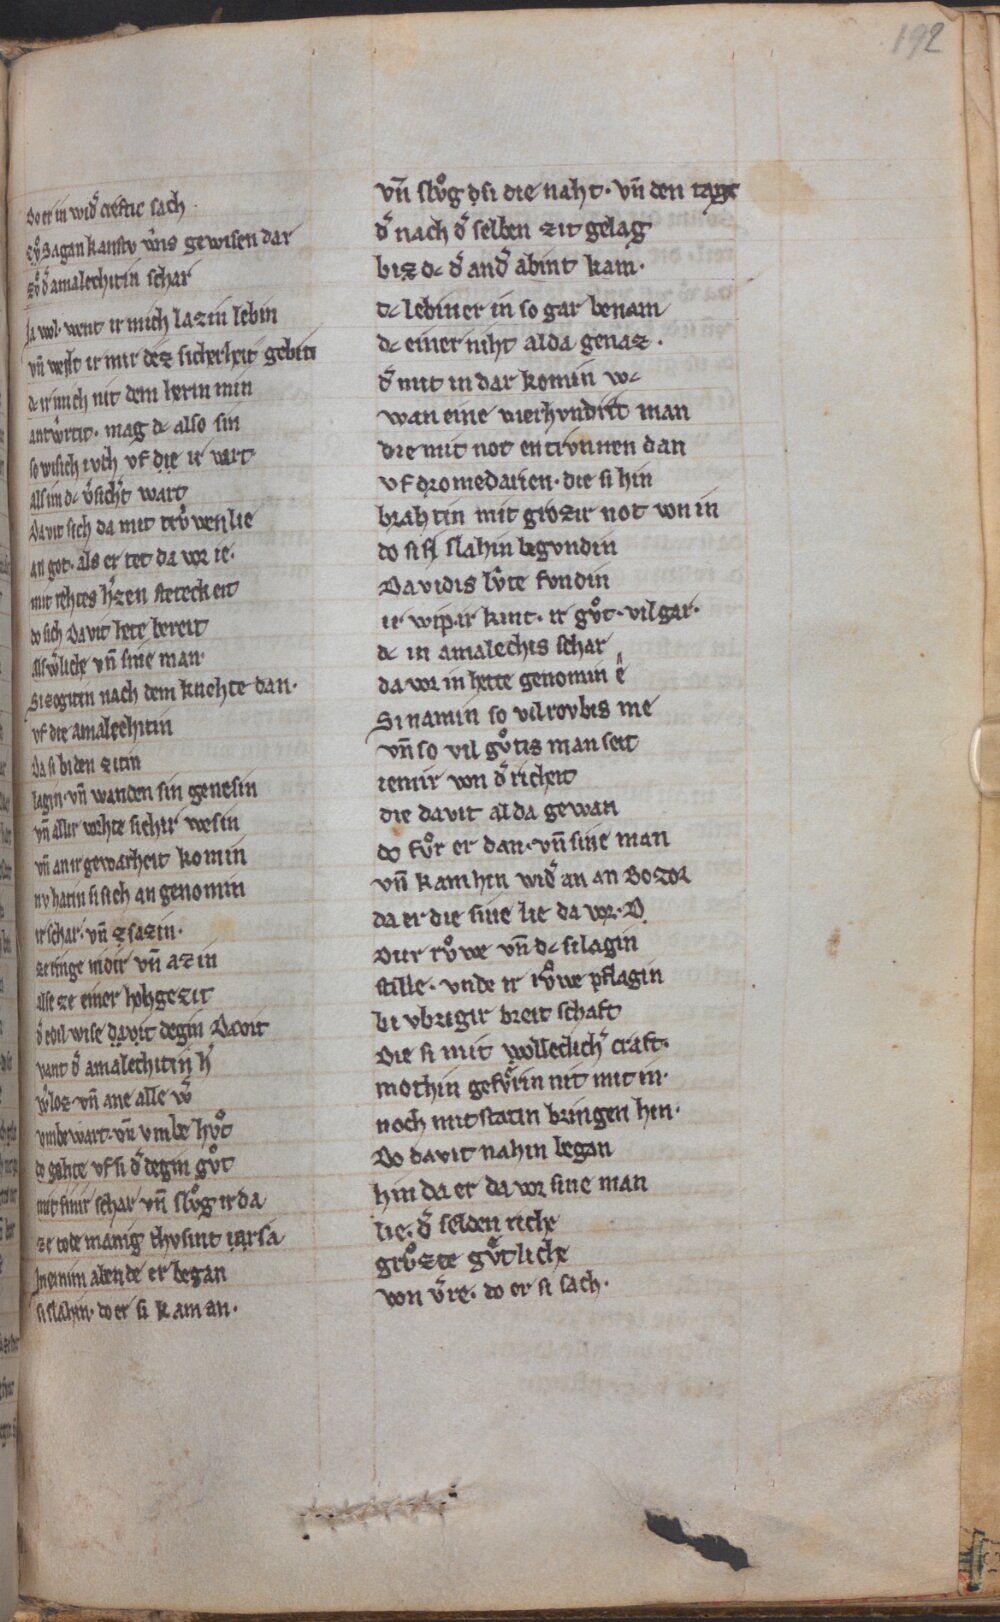 192
Do er in wid᷑ creftic sach.
Er sagan kanstu v̂ns gewisen dar
zů d᷑ amalechitin schar
Ja wol. went ir mich lazin lebin
vn̄ welt ir mir dez sicherheit gebin
dc ir mich nit dem herin min
antẘrtit. mag dc also sin
so wisich ivch vf die ir vart
als im dc v᷑sich᷑t wart
Davit sich da mit trůwen lie
an got. als er tet da vor ie.
mit rehtes h᷑zen steteckeit
do sich Davit hete bereit
als w᷑liche vn̄ sine man.
Si zogitin nach dem knehte dan.
vf die amalechitin
Da si bi den zitin
lagin. vn̄ wanden sin genesin
vn̄ allir vorhte sichir wesin
vn̄ an ir gewarheit komin
nv hatin si sich an genomin
ir schar. vn̄ zsazin.
ze ringe nidir vn̄ azin
alse ze einer hohgezit
d᷑ edil wise davit degin Davit
vant d᷑ amalechitin h᷑
w᷑loz vn̄ ane alle w᷑
vmbewart. vn̄ vmbe hůt
do gahte vf si d᷑ degin gůt
mit sinir schar vn̄ slůg ir da
ze tode manig thvsint
In einim abende er began
si slahin. do er si kam an.
vn̄ slůg si die naht. vn̄ den tage
d᷑ nach d᷑ selben zit gelag
biz dc d᷑ and᷑ abint kam.
dc lebin er in so gar benam
dc einer niht alda genaz.
d᷑ mit in dar komin wc
wan eine vierhvndirt man
die mit not entrvnnen dan
vf dromedarien. die si hin
brahtin mit grozir not von in
do si si slahin begvndin
Davidis lv̂te fvndin
ir wip. ir kint. ir gůt. vil gar.
dc in amalechis schar
da vor in hette genomin e
Si namin so vil rovbis me
vn̄ so vil gůtis man seit
iemir von d᷑ richeit
die davit alda gewan
do fůr er dan. vn̄ sine man
vn̄ kam hin wid᷑ an an Bozor
da er die sine lie da vor. D
Dur růwe vn̄ dc si lagin
stille. vnde ir růwe pflagin
bi vbrigir breit schaft
Die si mit volleclich᷑ craft.
mothin gefůrin nit mit in.
noch mit statin bringen hin.
Do davit nahin began
hin da er da vor sine man
lie. d᷑ selden riche
grůzte gůtliche
von v᷑re. do er si sach.